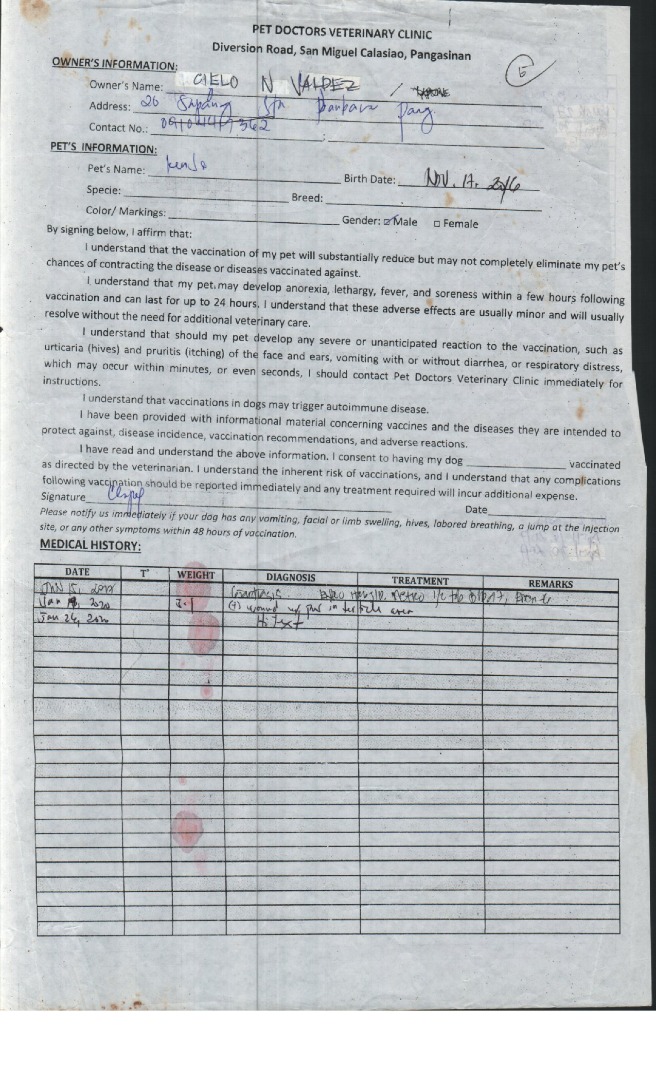 PET DOCTORS VETERINARY CLINIC
Diversion Road, San Miguel Calasiao, Pangasinan
OWNER'S INFORMATION:
Owner's Name: CIELO N VALDEZ /
Address: 26 Sapang Sta Barbara Pang.
Contact No.:
PET'S INFORMATION:
Pet's Name:
Birth Date: NOV. 17, 2016
Specie: Breed:
Color/ Markings: Gender: ☑Male □ Female
By signing below, I affirm that:
I understand that the vaccination of my pet will substantially reduce but may not completely eliminate my pet's
chances of contracting the disease or diseases vaccinated against.
I understand that my pet may develop anorexia, lethargy, fever, and soreness within a few hours following
vaccination and can last for up to 24 hours. I understand that these adverse effects are usually minor and will usually
resolve without the need for additional veterinary care.
I understand that should my pet develop any severe or unanticipated reaction to the vaccination, such as
urticaria (hives) and pruritis (itching) of the face and ears, vomiting with or without diarrhea, or respiratory distress,
which may occur within minutes, or even seconds, I should contact Pet Doctors Veterinary Clinic immediately for
instructions.
I understand that vaccinations in dogs may trigger autoimmune disease.
I have been provided with informational material concerning vaccines and the diseases they are intended to
protect against, disease incidence, vaccination recommendations, and adverse reactions.
I have read and understand the above information. I consent to having my dog vaccinated
as directed by the veterinarian. I understand the inherent risk of vaccinations, and I understand that any complications
following vaccination should be reported immediately and any treatment required will incur additional expense.
Signature Date
Please notify us immediately if your dog has any vomiting, facial or limb swelling, hives, labored breathing, a jump at the injection
site, or any other symptoms within 48 hours of vaccination.
MEDICAL HISTORY:
DATE T° WEIGHT DIAGNOSIS TREATMENT REMARKS
(+) wound w/ pus in area
Jan 26, 2020